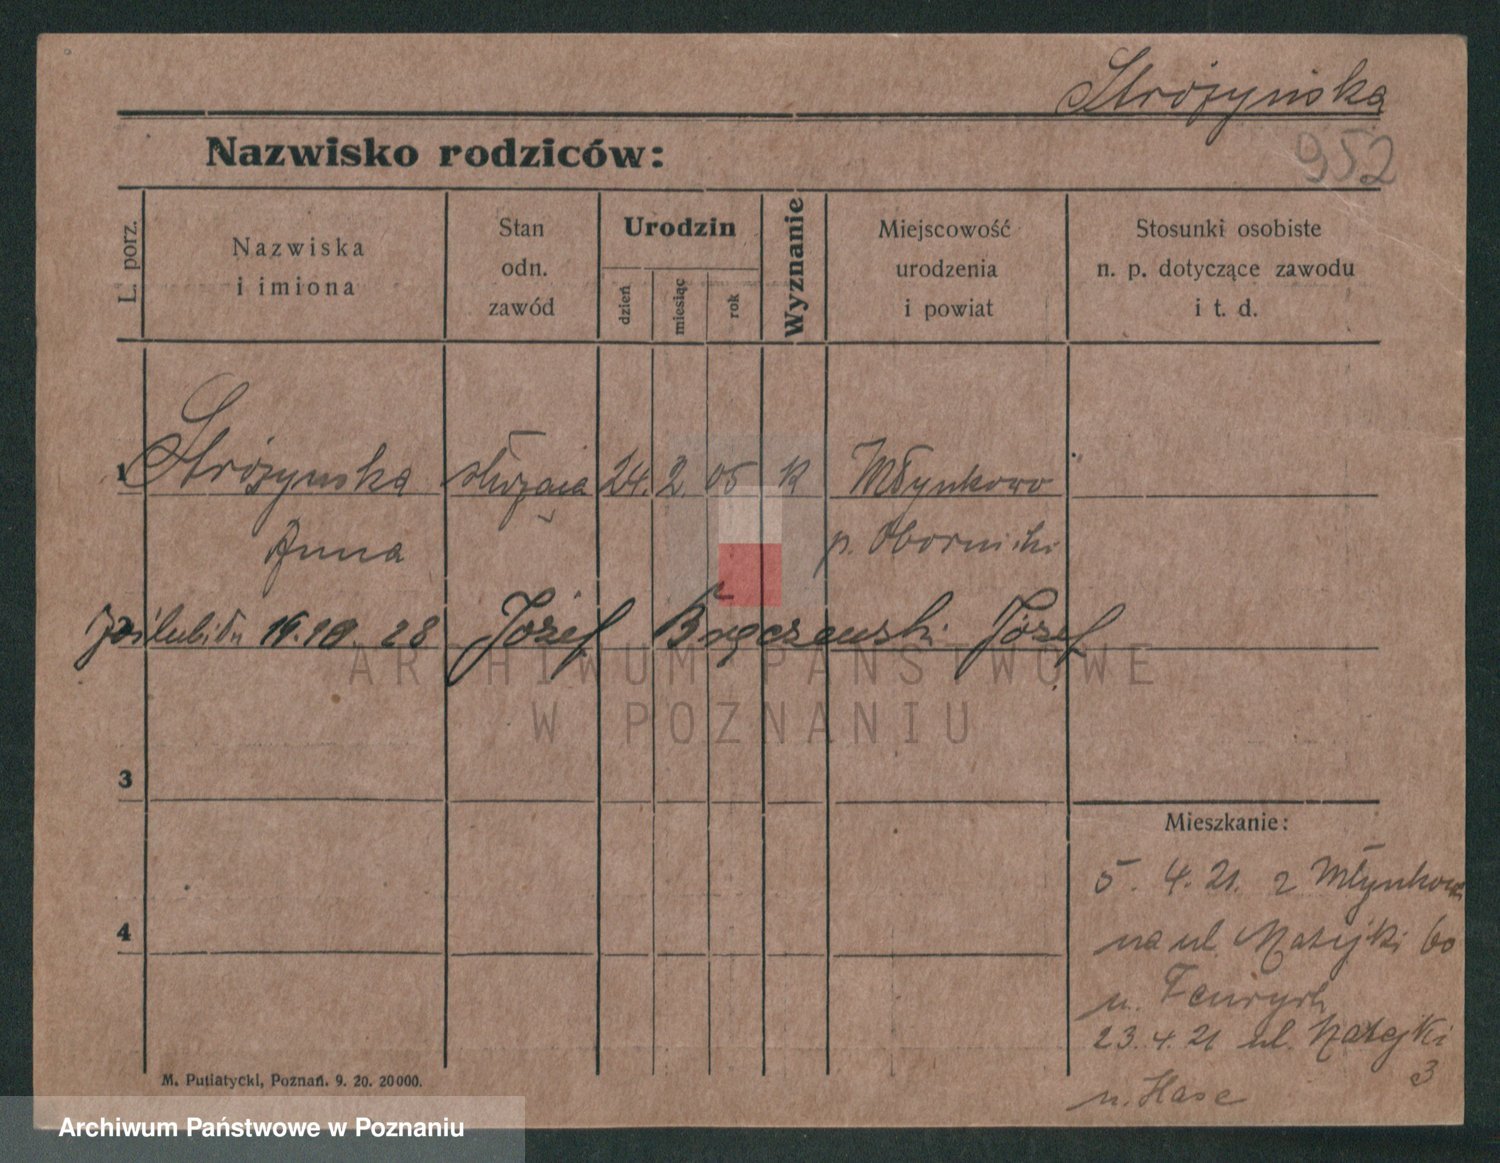 Stróżyńska
952
Nazwisko rodziców:
L. porz.
Nazwiska
i imiona
Stan
odn.
zawód
Urodzin
dzień
miesiąc
rok
Wyznanie
Miejscowość
urodzenia
i powiat
Stosunki osobiste
n. p. dotyczące zawodu
i t. d.
1 Stróżynska służąca 24. 2. 05 K Młynkowo
Anna p. Oborniki
zaślubiła 10. 28 Józef Józef
ARCHIWUM PAŃSTWOWE
W POZNANIU
3
Mieszkanie:
5. 4. 21. z Młynkowa
4
na ul. Matejki 60
u.
23. 4. 21 ul. Matejki
3
u. Hase
M. Putiatycki, Poznań. 9. 20. 20000.
Archiwum Państwowe w Poznaniu